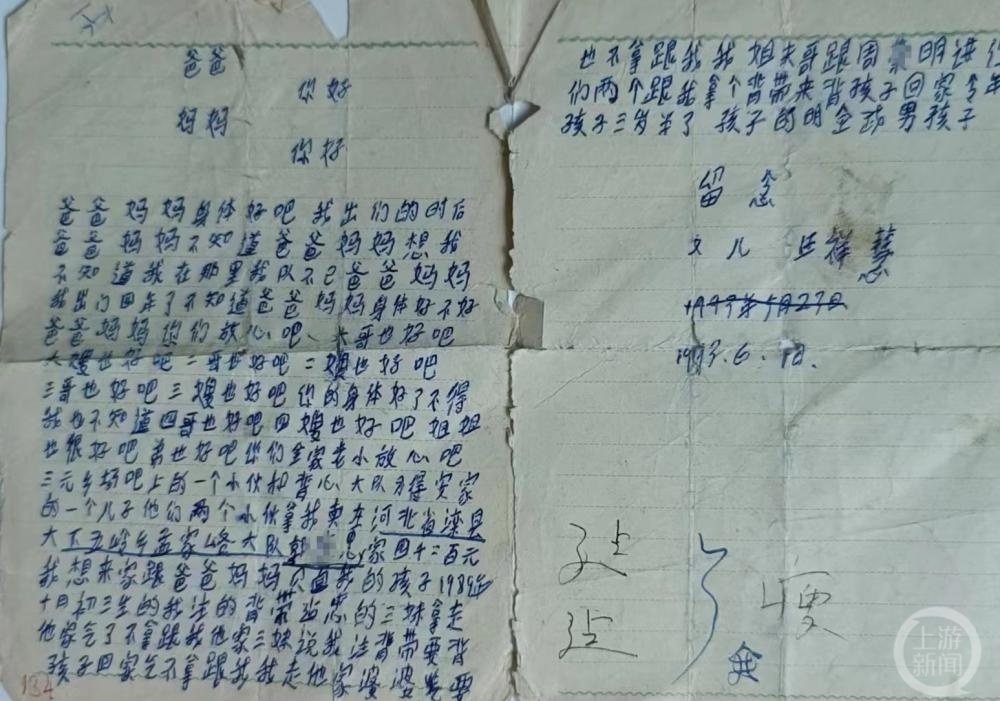 爸爸
你好
妈妈
你好
爸爸 妈妈身体好吧 我出们的时后
爸爸 妈妈不知道爸爸妈妈想我
不知道我在那里我队不己爸爸妈妈
我出门四年了不知道爸爸妈妈身体好不好
爸爸妈妈你们放心吧、大哥也好吧
大嫂也好吧二哥也好吧二嫂也好吧
三哥也好吧三嫂也好吧你的身体好了不得
我也不知道四哥也好吧四嫂也好吧姐姐
也很好吧弟也好吧你们全家老小放心吧
三元乡场吧上的一个小伙和背心大队
的一个儿子他们两个小伙拿我卖在河北省滦县
大下五岭乡孟家峪大队 惠家四千二百元
我想来家跟爸爸妈妈 我的孩子1989年
十月初三生的我注的背带 的三妹拿走
他家气了不拿跟我他家三妹说我注背带要背
孩子回家气不拿跟我我走他家婆婆 要
134
也不拿跟我我姐夫哥跟周 明进
们两个跟我拿个背带来背孩子回家今年
孩子三岁半了 孩子的明全 男孩子
留念
女儿 祥慧
1993.6.
上游新闻